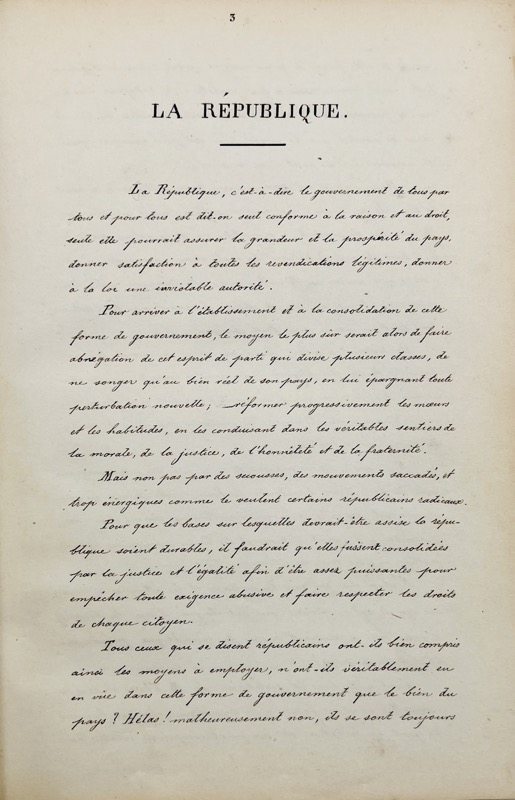 3
LA RÉPUBLIQUE.
La République, c'est-à-dire le gouvernement de tous par
tous et pour tous est dit-on seul conforme à la raison et au droit,
seule elle pourrait assurer la grandeur et la prospérité du pays,
donner satisfaction à toutes les revendications légitimes, donner
à la loi une inviolable autorité.
Pour arriver à l'établissement et à la consolidation de cette
forme de gouvernement, le moyen le plus sûr serait alors de faire
abnégation de cet esprit de parti qui divise plusieurs classes, de
ne songer qu'au bien réel de son pays, en lui épargnant toute
perturbation nouvelle; réformer progressivement les mœurs
et les habitudes, en les conduisant dans les véritables sentiers de
la morale, de la justice, de l'honnêteté et de la fraternité.
Mais non pas par des secousses, des mouvements saccadés, et
trop énergiques comme le veulent certains républicains radicaux.
Pour que les bases sur lesquelles devrait-être assise la répu-
blique soient durables, il faudrait qu'elles fussent consolidées
par la justice et l'égalité afin d'être assez puissantes pour
empêcher toute exigence abusive et faire respecter les droits
de chaque citoyen.
Tous ceux qui se disent républicains ont-ils bien compris
ainsi les moyens à employer, n'ont-ils véritablement eu
en vue dans cette forme de gouvernement que le bien du
pays? Hélas! malheureusement non, ils se sont toujours